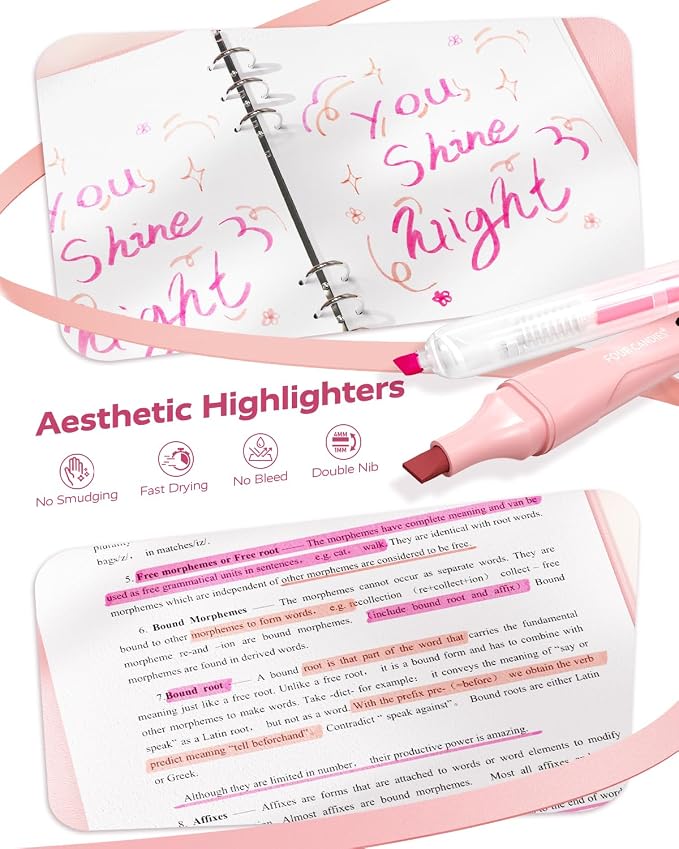 you
Shine
Night
you
Shine
Night
FOUR CANDIES
Aesthetic Highlighters
No Smudging
Fast Drying
No Bleed
4MM
1MM
Double Nib
bags/z/, in matches/iz/.
5. Free morphemes or Free root —— The morphemes have complete meaning and van be
used as free grammatical units in sentences, e.g. cat, walk. They are identical with root words.
morphemes which are independent of other morphemes are considered to be free.
6. Bound Morphemes —— The morphemes cannot occur as separate words. They are
bound to other morphemes to form words, e.g. recollection (re+collect+ion) collect – free
morpheme re-and –ion are bound morphemes. (include bound root and affix) Bound
morphemes are found in derived words.
7.Bound root - —— A bound root is that part of the word that carries the fundamental
meaning just like a free root. Unlike a free root, it is a bound form and has to combine with
other morphemes to make words. Take -dict- for example: it conveys the meaning of "say or
speak" as a Latin root, but not as a word. With the prefix pre- (=before) we obtain the verb
predict meaning "tell beforehand". Contradict " speak against"。 Bound roots are either Latin
or Greek.
Although they are limited in number, their productive power is amazing.
8. Affixes —— Affixes are forms that are attached to words or word elements to modify
Almost affixes are bound morphemes. Most all affixes
to the end of word